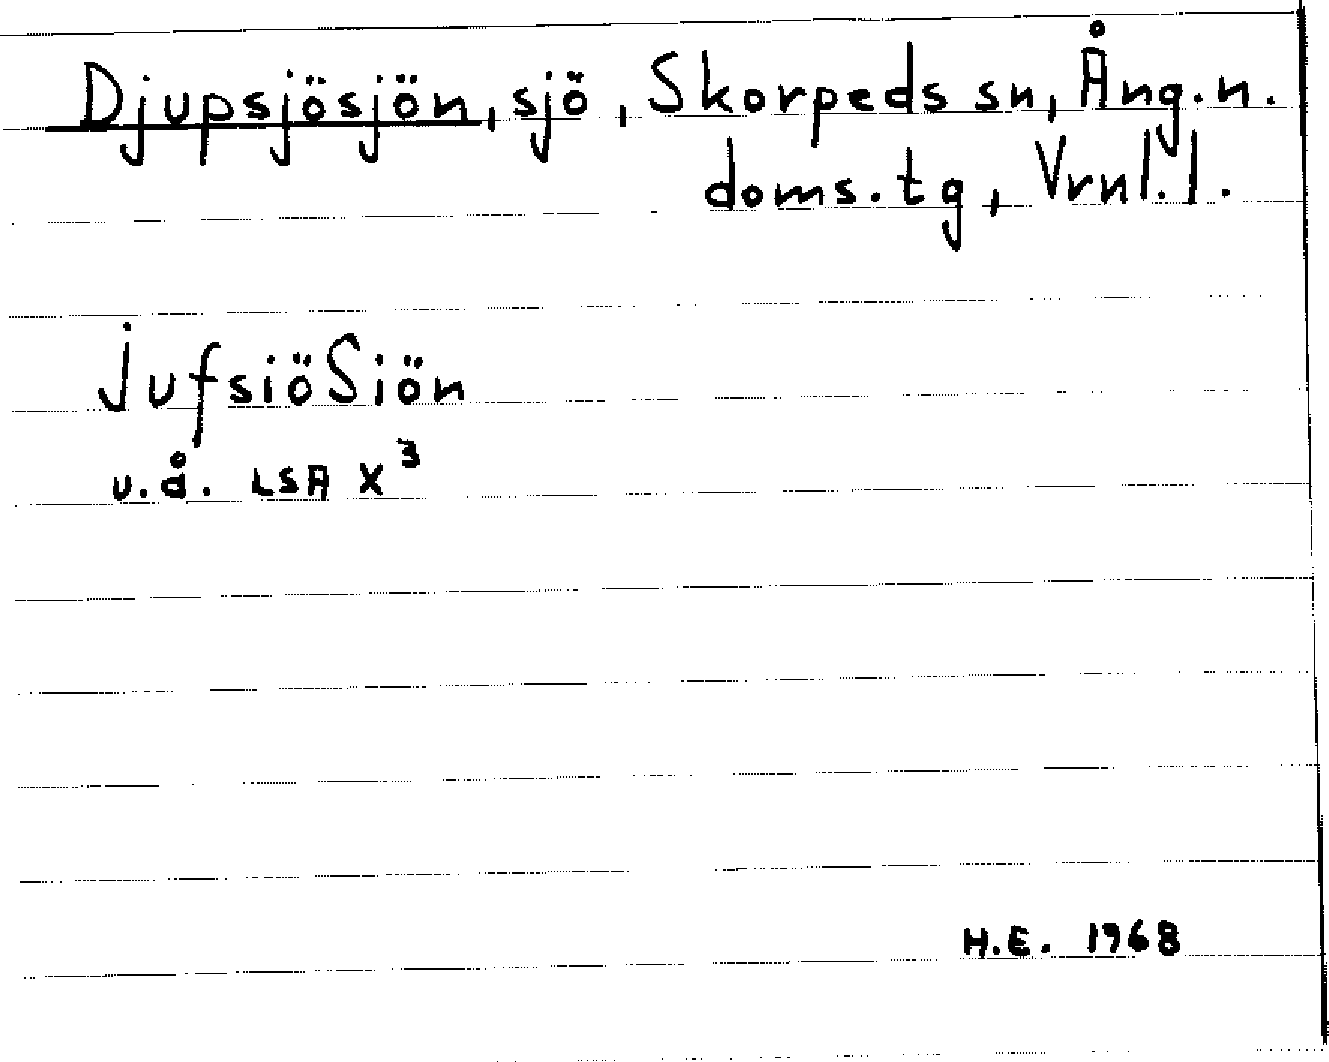 Djupsjösjön, sjö, Skorpeds sn, Ång.n.
doms.tg, Vrnl.l.
JufsiöSiön
u.å. LSA X³
H.E. 1968